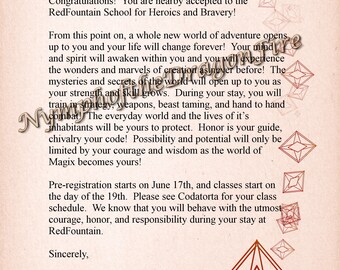 Congratulations! You are nearby accepted to the
RedFountain School for Heroics and Bravery!
From this point on, a whole new world of adventure opens
up to you and your life will change forever! Your mind
and spirit will awaken within you and you will experience
the wonders and marvels of creation never before! The
mysteries and secrets of the world will open up to you as
your strength and skill grows. During your stay, you will
train in strategy, weapons, beast taming, and hand to hand
combat! The everyday world and the lives of it's
inhabitants will be yours to protect. Honor is your guide,
chivalry your code! Possibility and potential will only be
limited by your courage and wisdom as the world of
Magix becomes yours!
Pre-registration starts on June 17th, and classes start on
the day of the 19th. Please see Codatorta for your class
schedule. We know that you will behave with the utmost
courage, honor, and responsibility during your stay at
RedFountain.
Sincerely,
NymphoftheDragonFire